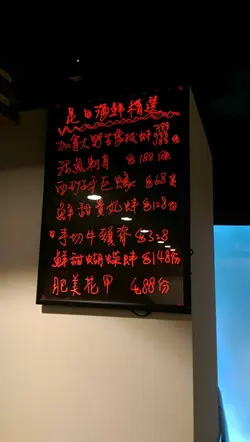 是日海鮮精選
加拿大野生象拔蚌
刺身 $188份
西班牙巨蠔 $68隻
鮮甜貴妃蚌 $128份
日手切牛頸脊 $328
鮮甜蝴蝶蚌 $148份
肥美花甲 $88份